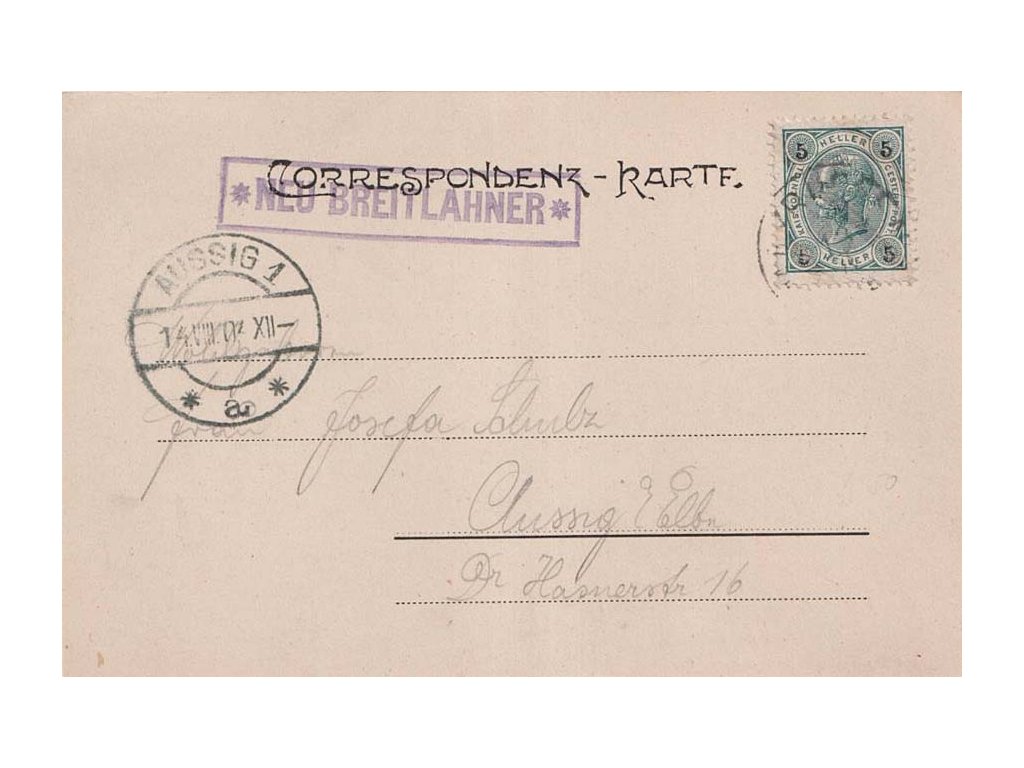 CORRESPONDENZ-KARTE.
* NEU BREITLAHNER *
5 HELLER 5
KAIS. KÖNIGL. OESTERR. POST
5 HELLER 5
AUSSIG 1
14.VIII.02 XII-
* a *
Wohlgeboren
Frau Josefa Schulz
Aussig a/Elbe
Dr Hasnerstr 16